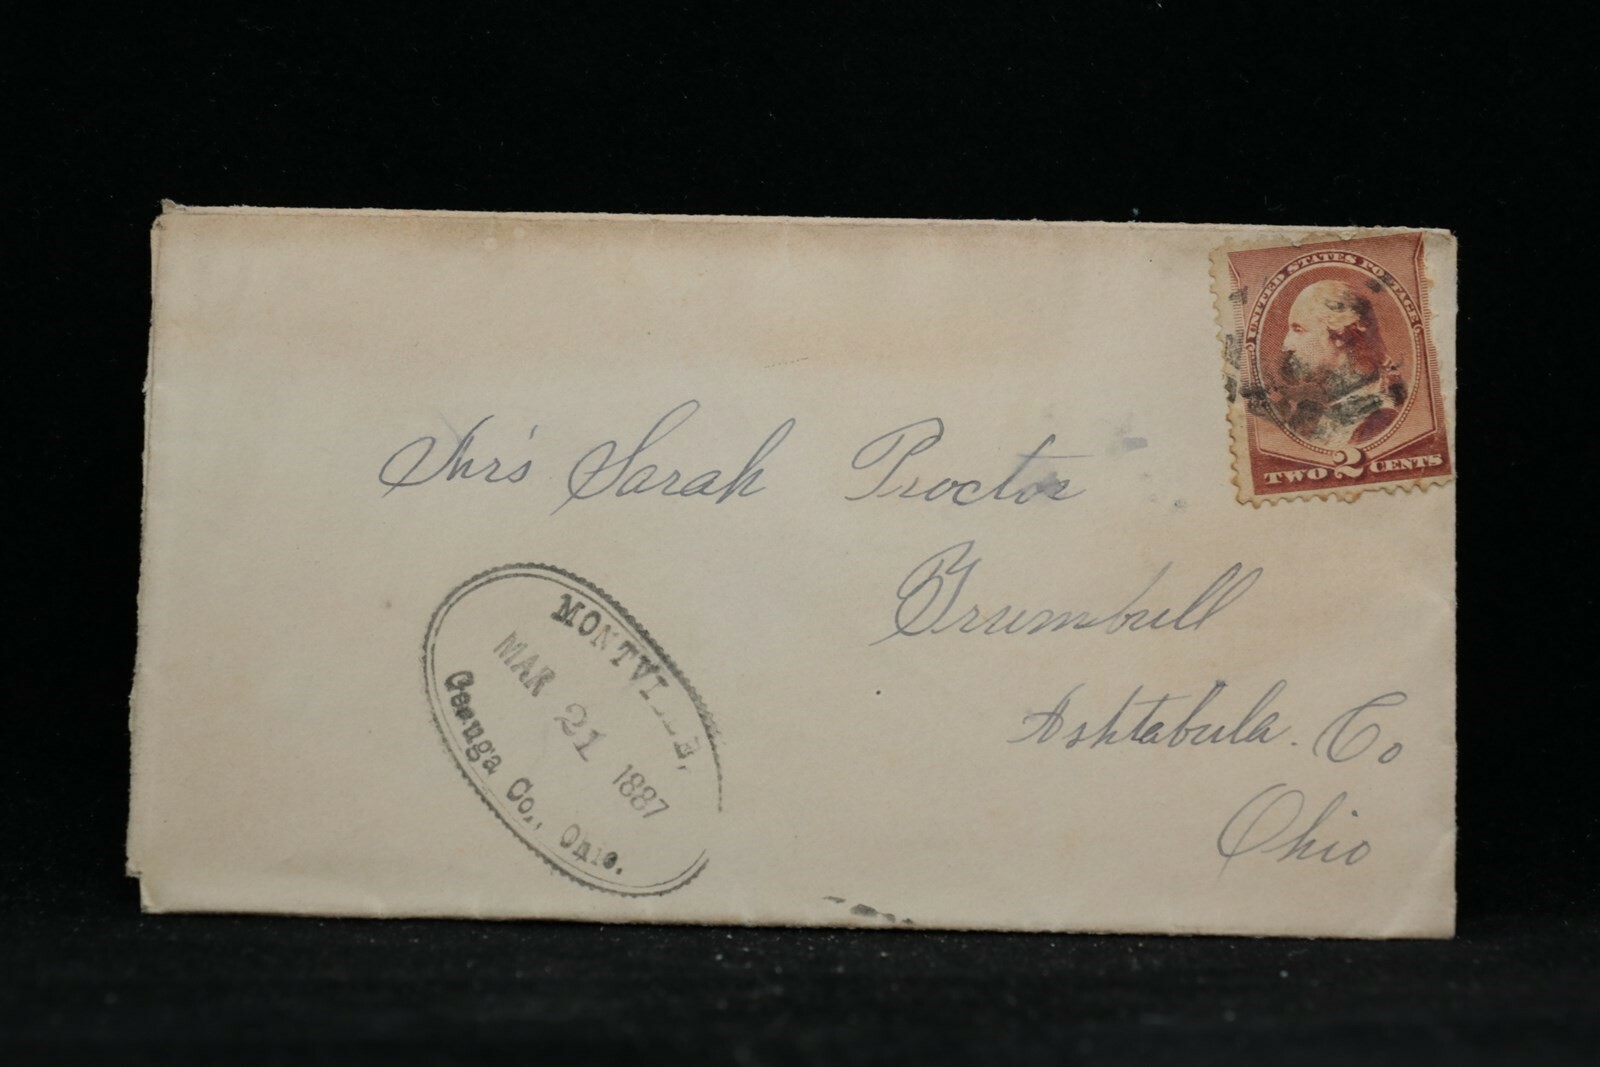 UNITED STATES POSTAGE
TWO 2 CENTS
Mrs Sarah Proctor
Trumbull
Ashtabula. Co
Ohio
MONTVILLE,
MAR 21 1887
Geauga Co., Ohio.